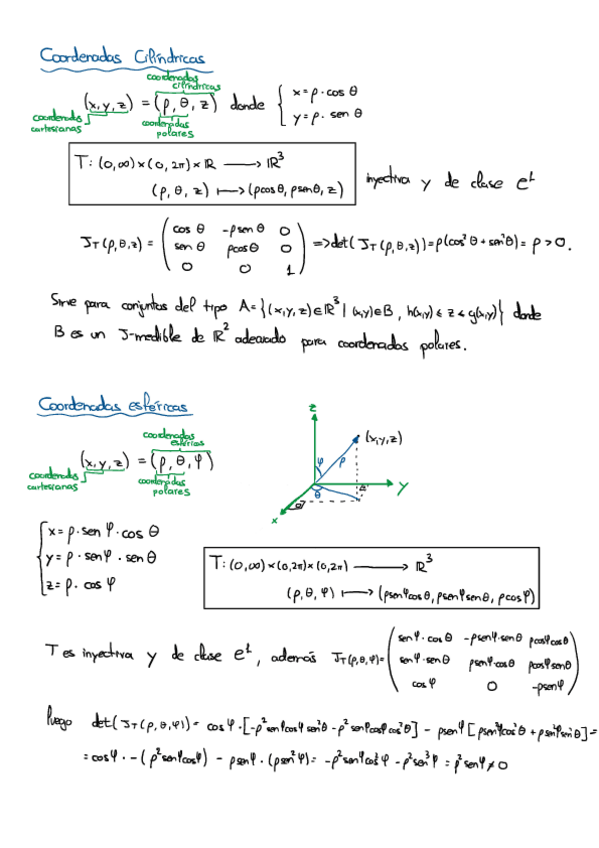 Coordenadas Cilíndricas
coordenadas cilíndricas
(x,y,z) = (ρ, θ, z) donde { x=ρ·cos θ
y=ρ· sen θ
coordenadas cartesianas
coordenadas polares
T: (0,∞)×(0, 2π)×ℝ ⟶ ℝ³
(ρ, θ, z) ⟼ (ρcosθ, ρsenθ, z)
inyectiva y de clase C¹
J_T(ρ,θ,z) = ( cos θ -ρsenθ 0
sen θ ρcosθ 0
0 0 1 )
=>det(J_T(ρ,θ,z))=ρ(cos²θ+sen²θ)= ρ>0.
Sirve para conjuntos del tipo A={(x,y,z)∈ℝ³ | (x,y)∈B, h(x,y)≤z≤g(x,y)} donde
B es un J-medible de ℝ² adecuado para coordenadas polares.
Coordenadas esféricas
coordenadas esféricas
(x,y,z) = (ρ, θ, φ)
coordenadas cartesianas
coordenadas polares
z
(x,y,z)
φ
ρ
θ
y
x
x=ρ·sen φ·cos θ
y=ρ·senφ·sen θ
z=ρ·cos φ
T: (0,∞)×(0,2π)×(0,2π) ⟶ ℝ³
(ρ, θ, φ) ⟼ (ρsenφcosθ, ρsenφsenθ, ρcosφ)
T es inyectiva y de clase C¹, además J_T(ρ,θ,φ)= ( senφ·cosθ -ρsenφ·senθ ρcosφcosθ
senφ·senθ ρsenφ·cosθ ρcosφsenθ
cosφ 0 -ρsenφ )
luego det(J_T(ρ,θ,φ))= cosφ·[-ρ²senφcosφsen²θ-ρ²senφcosφcos²θ] - ρsenφ[ρsen²φcos²θ+ρsen²φsen²θ]=
= cosφ·-(ρ²senφcosφ) - ρsenφ·(ρsen²φ)= -ρ²senφcos²φ-ρ²sen³φ = ρ²senφ≠0